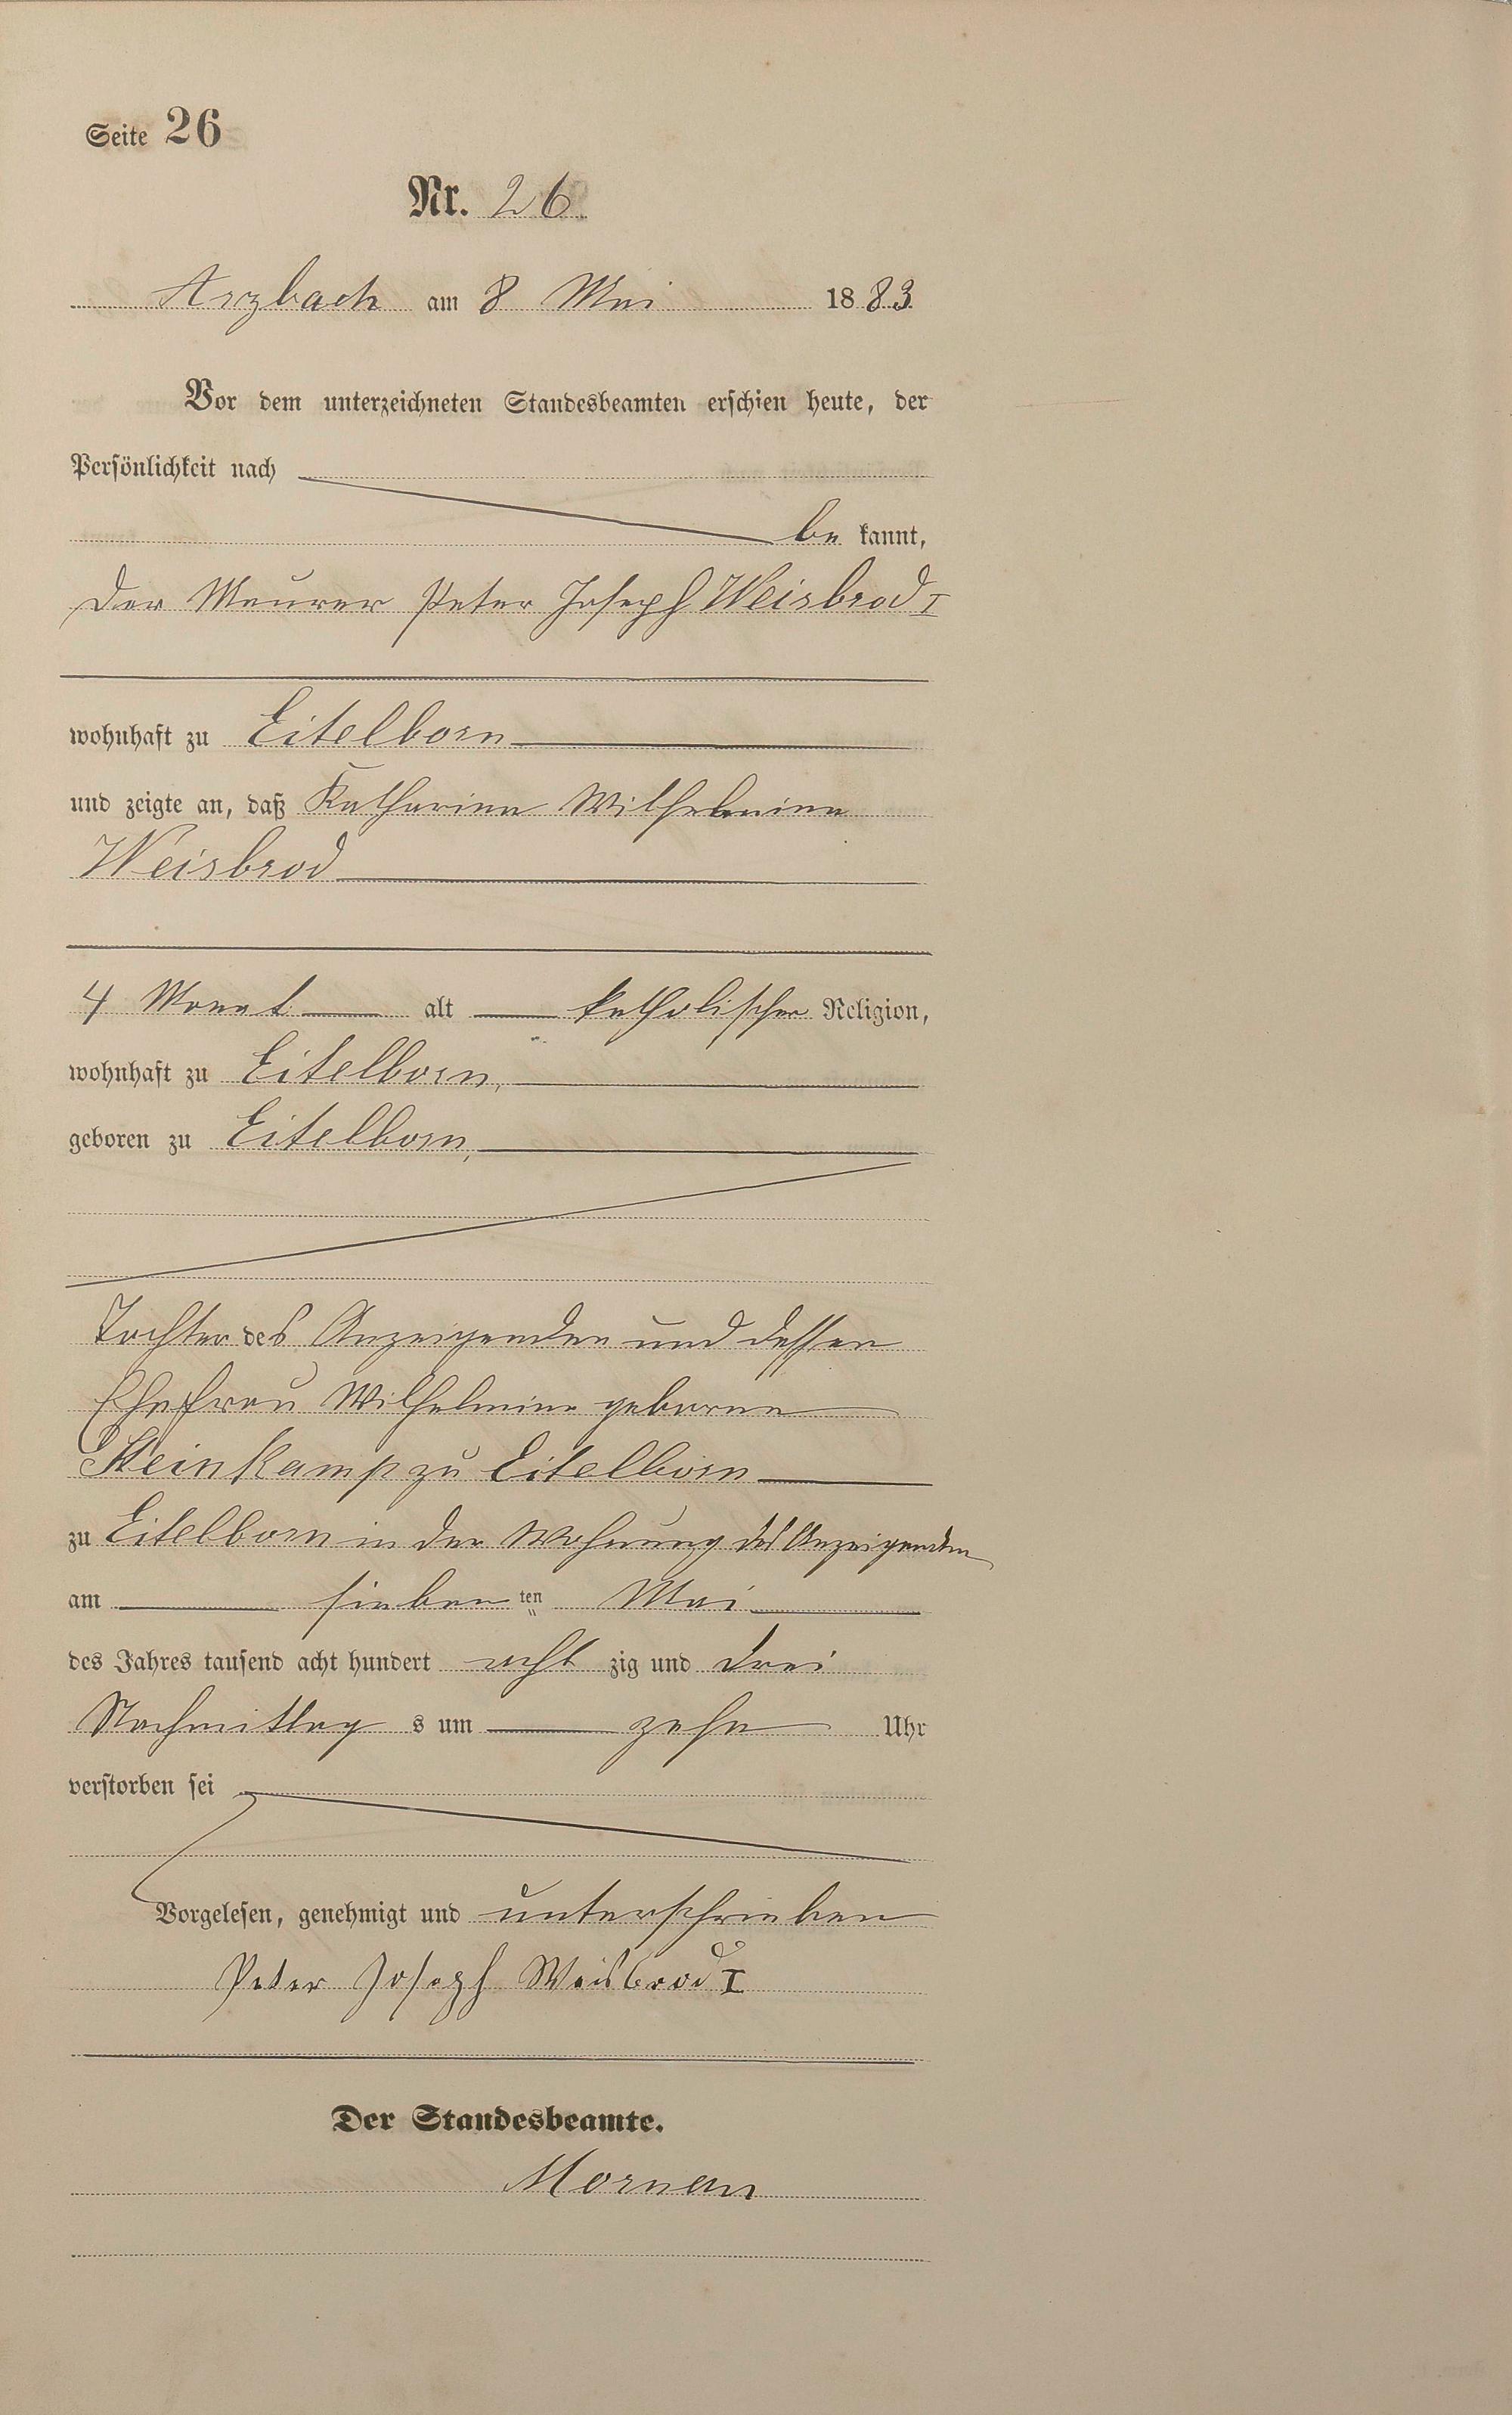 Seite 26
Nr. 26
Arzbach am 8 Mai 1883
Vor dem unterzeichneten Standesbeamten erschien heute, der
Persönlichkeit nach
be kannt,
der Maurer Peter Joseph Weisbrod I
wohnhaft zu Eitelborn
und zeigte an, daß Katharina Wilhelmine
Weisbrod
4 Monat alt katholischer Religion,
wohnhaft zu Eitelborn,
geboren zu Eitelborn,
Tochter des Anzeigenden und dessen
Ehefrau Wilhelmine geborne
Steinkamp zu Eitelborn
zu Eitelborn in der Wohnung des Anzeigenden
am sieben ten Mai
des Jahres tausend acht hundert acht zig und drei
Nachmittag s um zehn Uhr
verstorben sei
Vorgelesen, genehmigt und unterschrieben
Peter Joseph Weisbrod I
Der Standesbeamte.